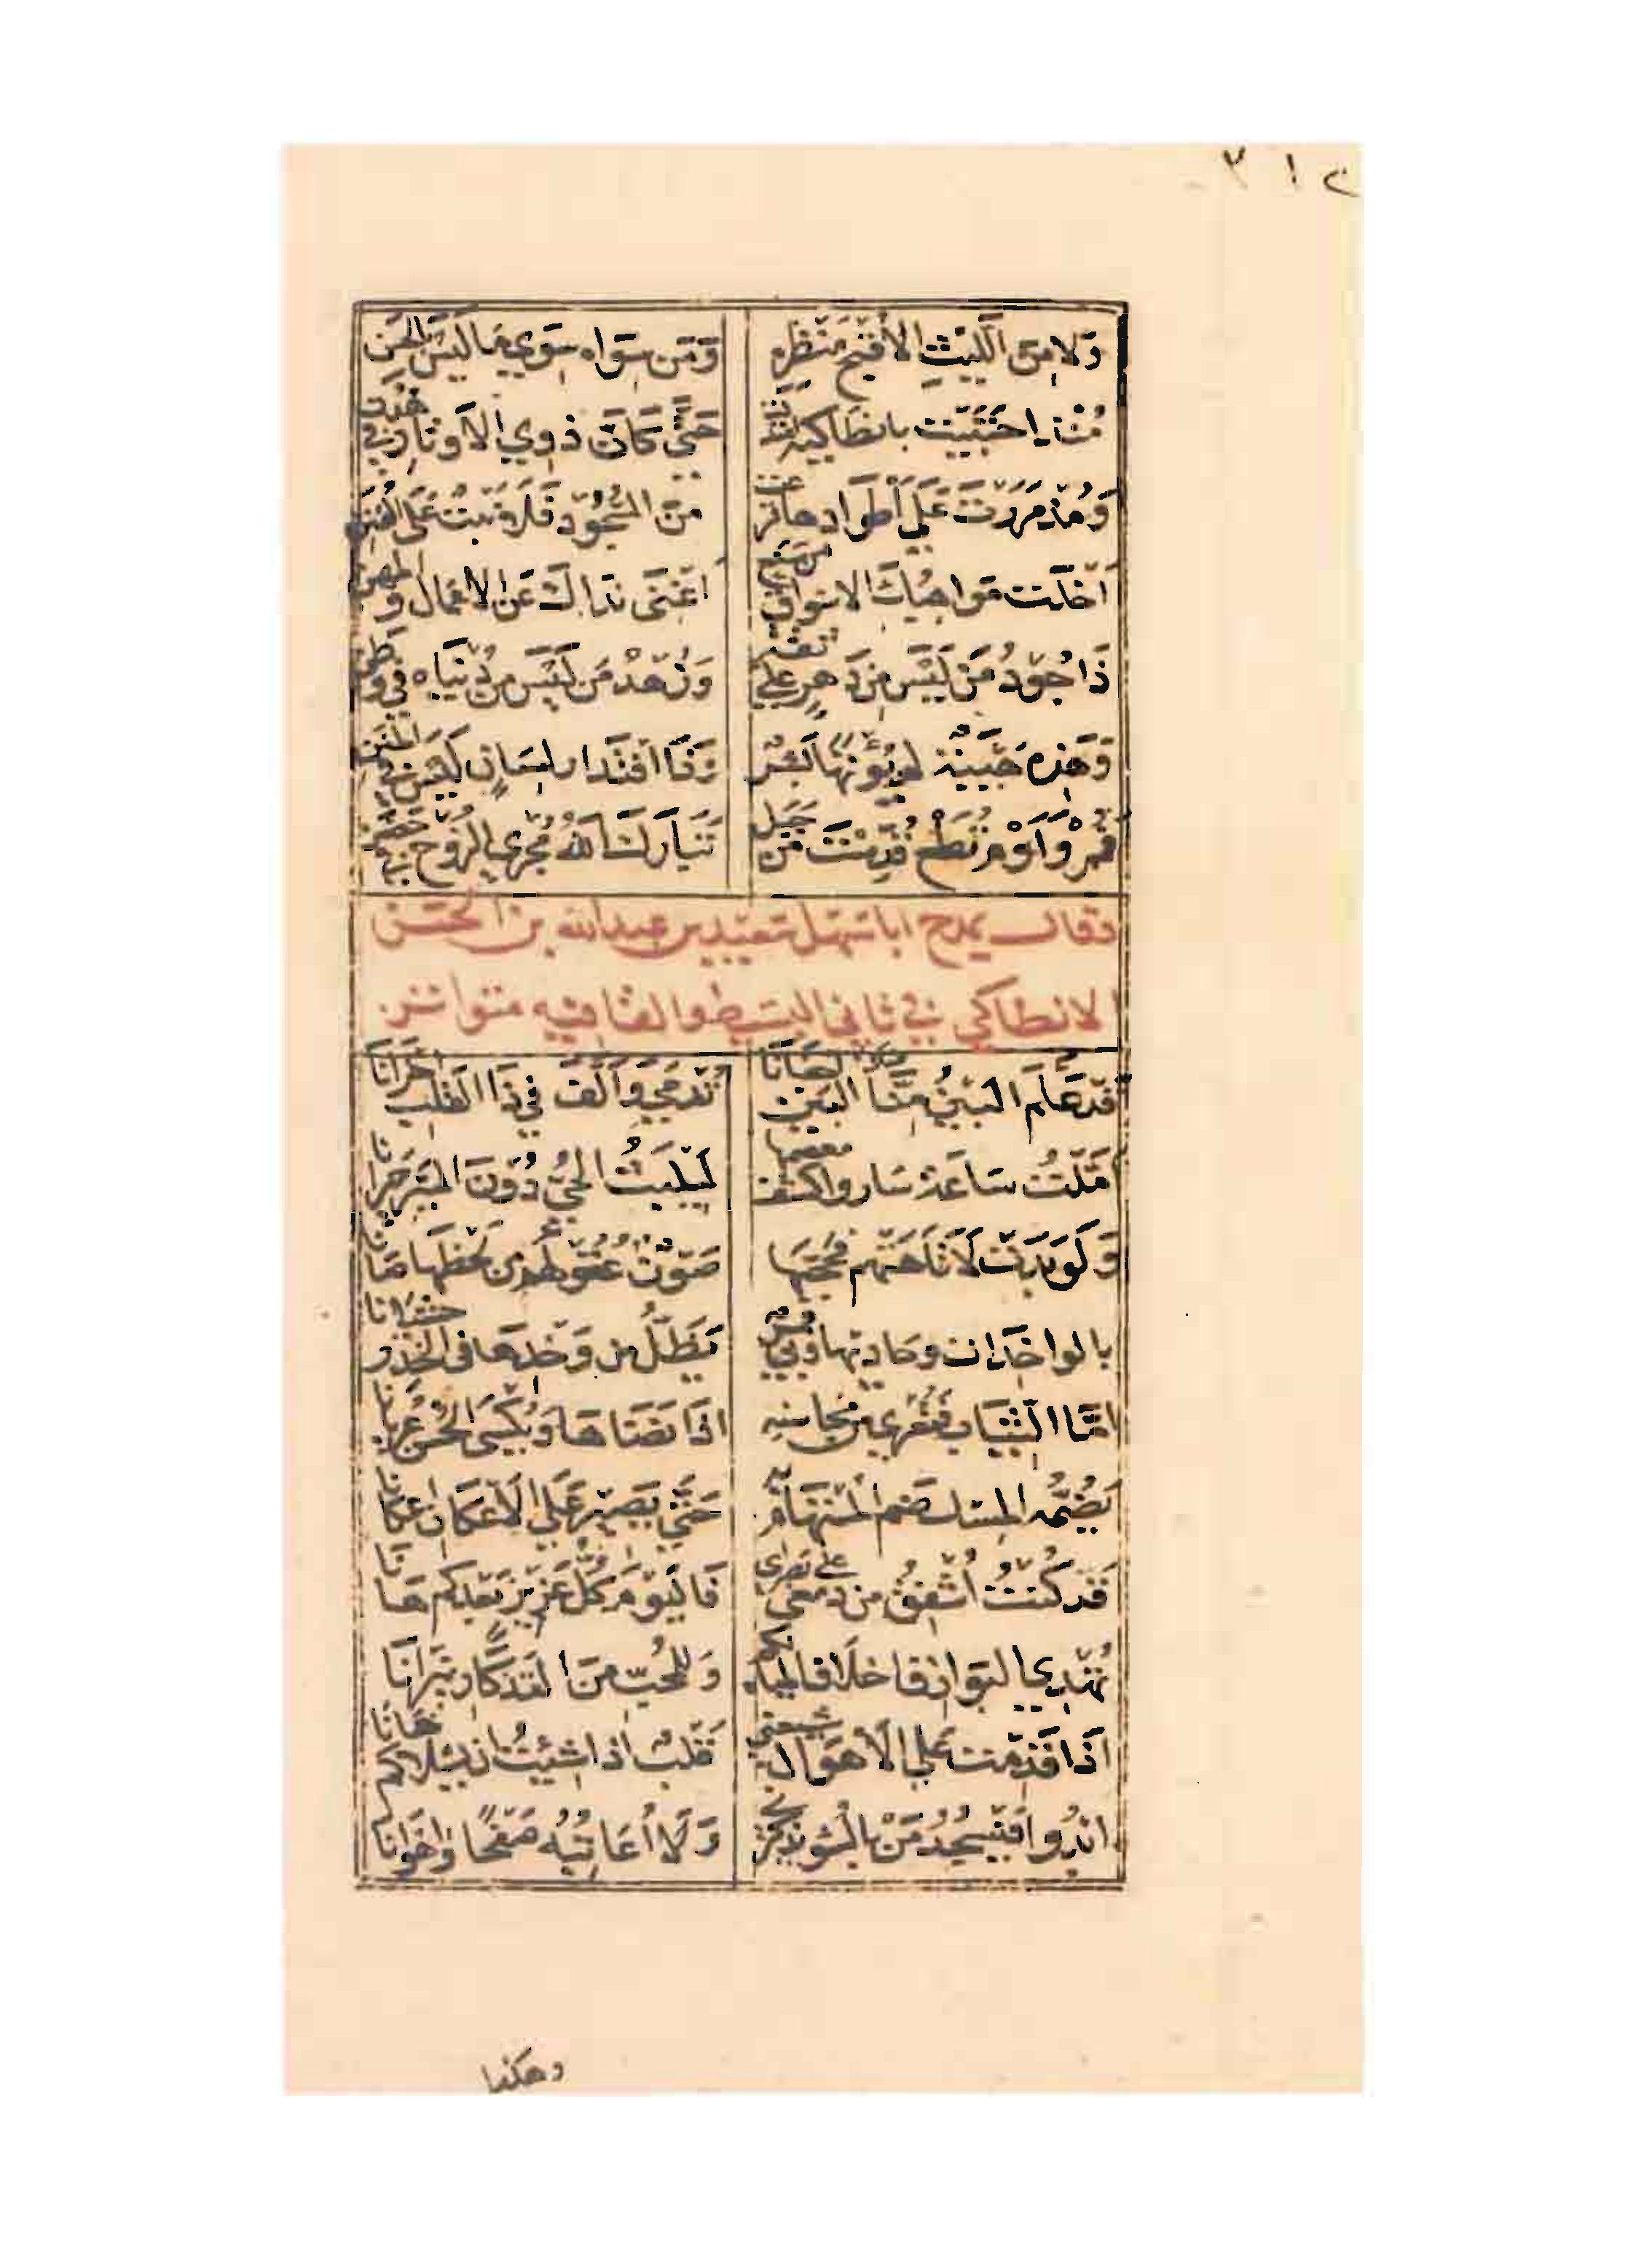 ٢١٣
وَلا مِنَ اللَّيْثِ الا قُبْحَ مَنْظَرِهِ وَمَن سِوَاه سِوَي مَا لَيْسَ بالحَسَنِ
مُنْذ احْتَبَيْت بانطَاكِية اعتدلت حَتَّي كَانَّ ذوي الاَوتَار في هُدَن
وَمُذْ مَرَرْتَ عَلَى أطْوَادهَا قرعت مِنَ السُّجُودِ فَلا نبت عَلَى القُنَن
أخْلَت مَوَاهِبُكَ الاسواق من صنع أغْنَى نَدَاكَ عَن الاعْمَال والمهن
ذَا جُودُ مَنْ لَيْسَ مِن دَهرٍ علي ثقة وَزُهْدُ مَن لَيْسَ مِن دُنْيَاه في وطن
وَهَذِه هَيْبَةٌ لم يُؤْتَهَا بَشَرٌ وَذَا اقتِدَار لِسَانٍ لَيْسَ في المُنَنِ
فَمُرْ وَأَوْمِ تُطَعْ قُدِّسْتَ مِن جَبَل تَبَارَكَ اللهُ مُجْرِي الرُّوح في حضن
وقال يمدح ابا سَهل سَعيد بن عبد الله بن الحسَن
الانطاكي في ثاني البسيط والقافيه متواتر
قَد عَلَّمَ البَيْنُ مِنَّا البَيْنَ اجفانا تَدْمي وَأَلَّفَ في ذَا القَلبِ احْزَانَا
أمَّلْتُ سَاعَة سَاروا كشف معصمها لَيَلبَثَ الحَيُّ دُوْنَ السَّيْرِ حَيْرَانا
وَلَوْ بَدَتْ لأَتَاهَتْهُم فَحَجَّبَهَا صَوْنٌ عُقُولَهُمُ من لَحْظِهَا صَانَا
بالواخِدَات وحَاديها وبي قمر يَظَلُّ مِن وَخْدِهَا في الخِدْر حشيانا
امَّا الثِّيَاب فَتَعْرَى مِن مَحَاسِنِهِ اذَا نَضَاهَا وَيُكْسَى الحُسْنَ عُرْيَانا
يَضُمُّه المِسْك ضَم المُسْتَهَام به حَتَّي يَصِيْرَ عَلَي الاَعْكَانِ اعْكَانَا
قَدْ كُنْتُ أُشْفِقُ مِن دَمعي على بَصَرِي فَاليَوْمَ كُلُّ عَزِيْزٍ بَعْدَكُم هَانَا
تُهْدِي البَوَارِق اخلاف المياه لكم وَلِلْمُحِبِّ مِنَ التذكَارِ نِيْرَانَا
اذَا قَدِمْتُ عَلي الأهْوَال شيعني قَلْبٌ اذا شِئْتُ ان يَسْلاكم خَانَا
أبْدُو فَيَسْجُدُ مَنْ بالسُّوءِ يَذْكُرني وَلا أُعَاتِبُه صَفْحًا وَاهْوَانَا
وهكذا